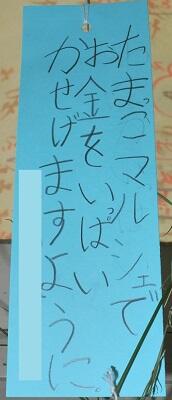 たまっこマルシェで
お金をいっぱい
かせげますように。